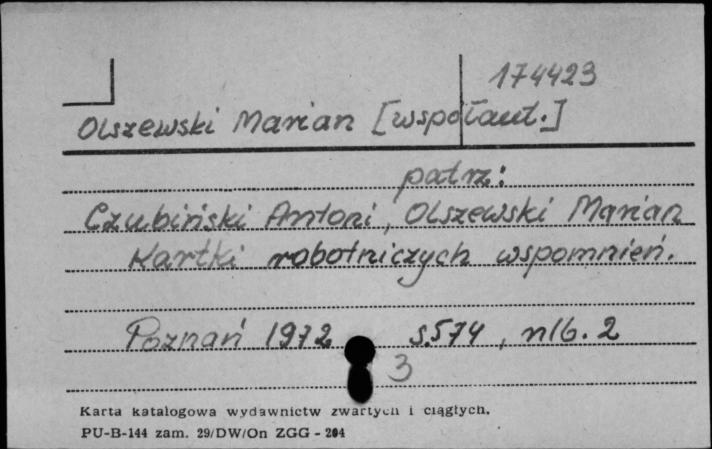 174423
Olszewski Marian [współaut.]
patrz:
Czubiński Antoni, Olszewski Marian
Kartki robotniczych wspomnień.
Poznań 1972 s.574, nlb. 2
3
Karta katalogowa wydawnictw zwartych i ciągłych.
PU-B-144 zam. 29/DW/On ZGG - 204